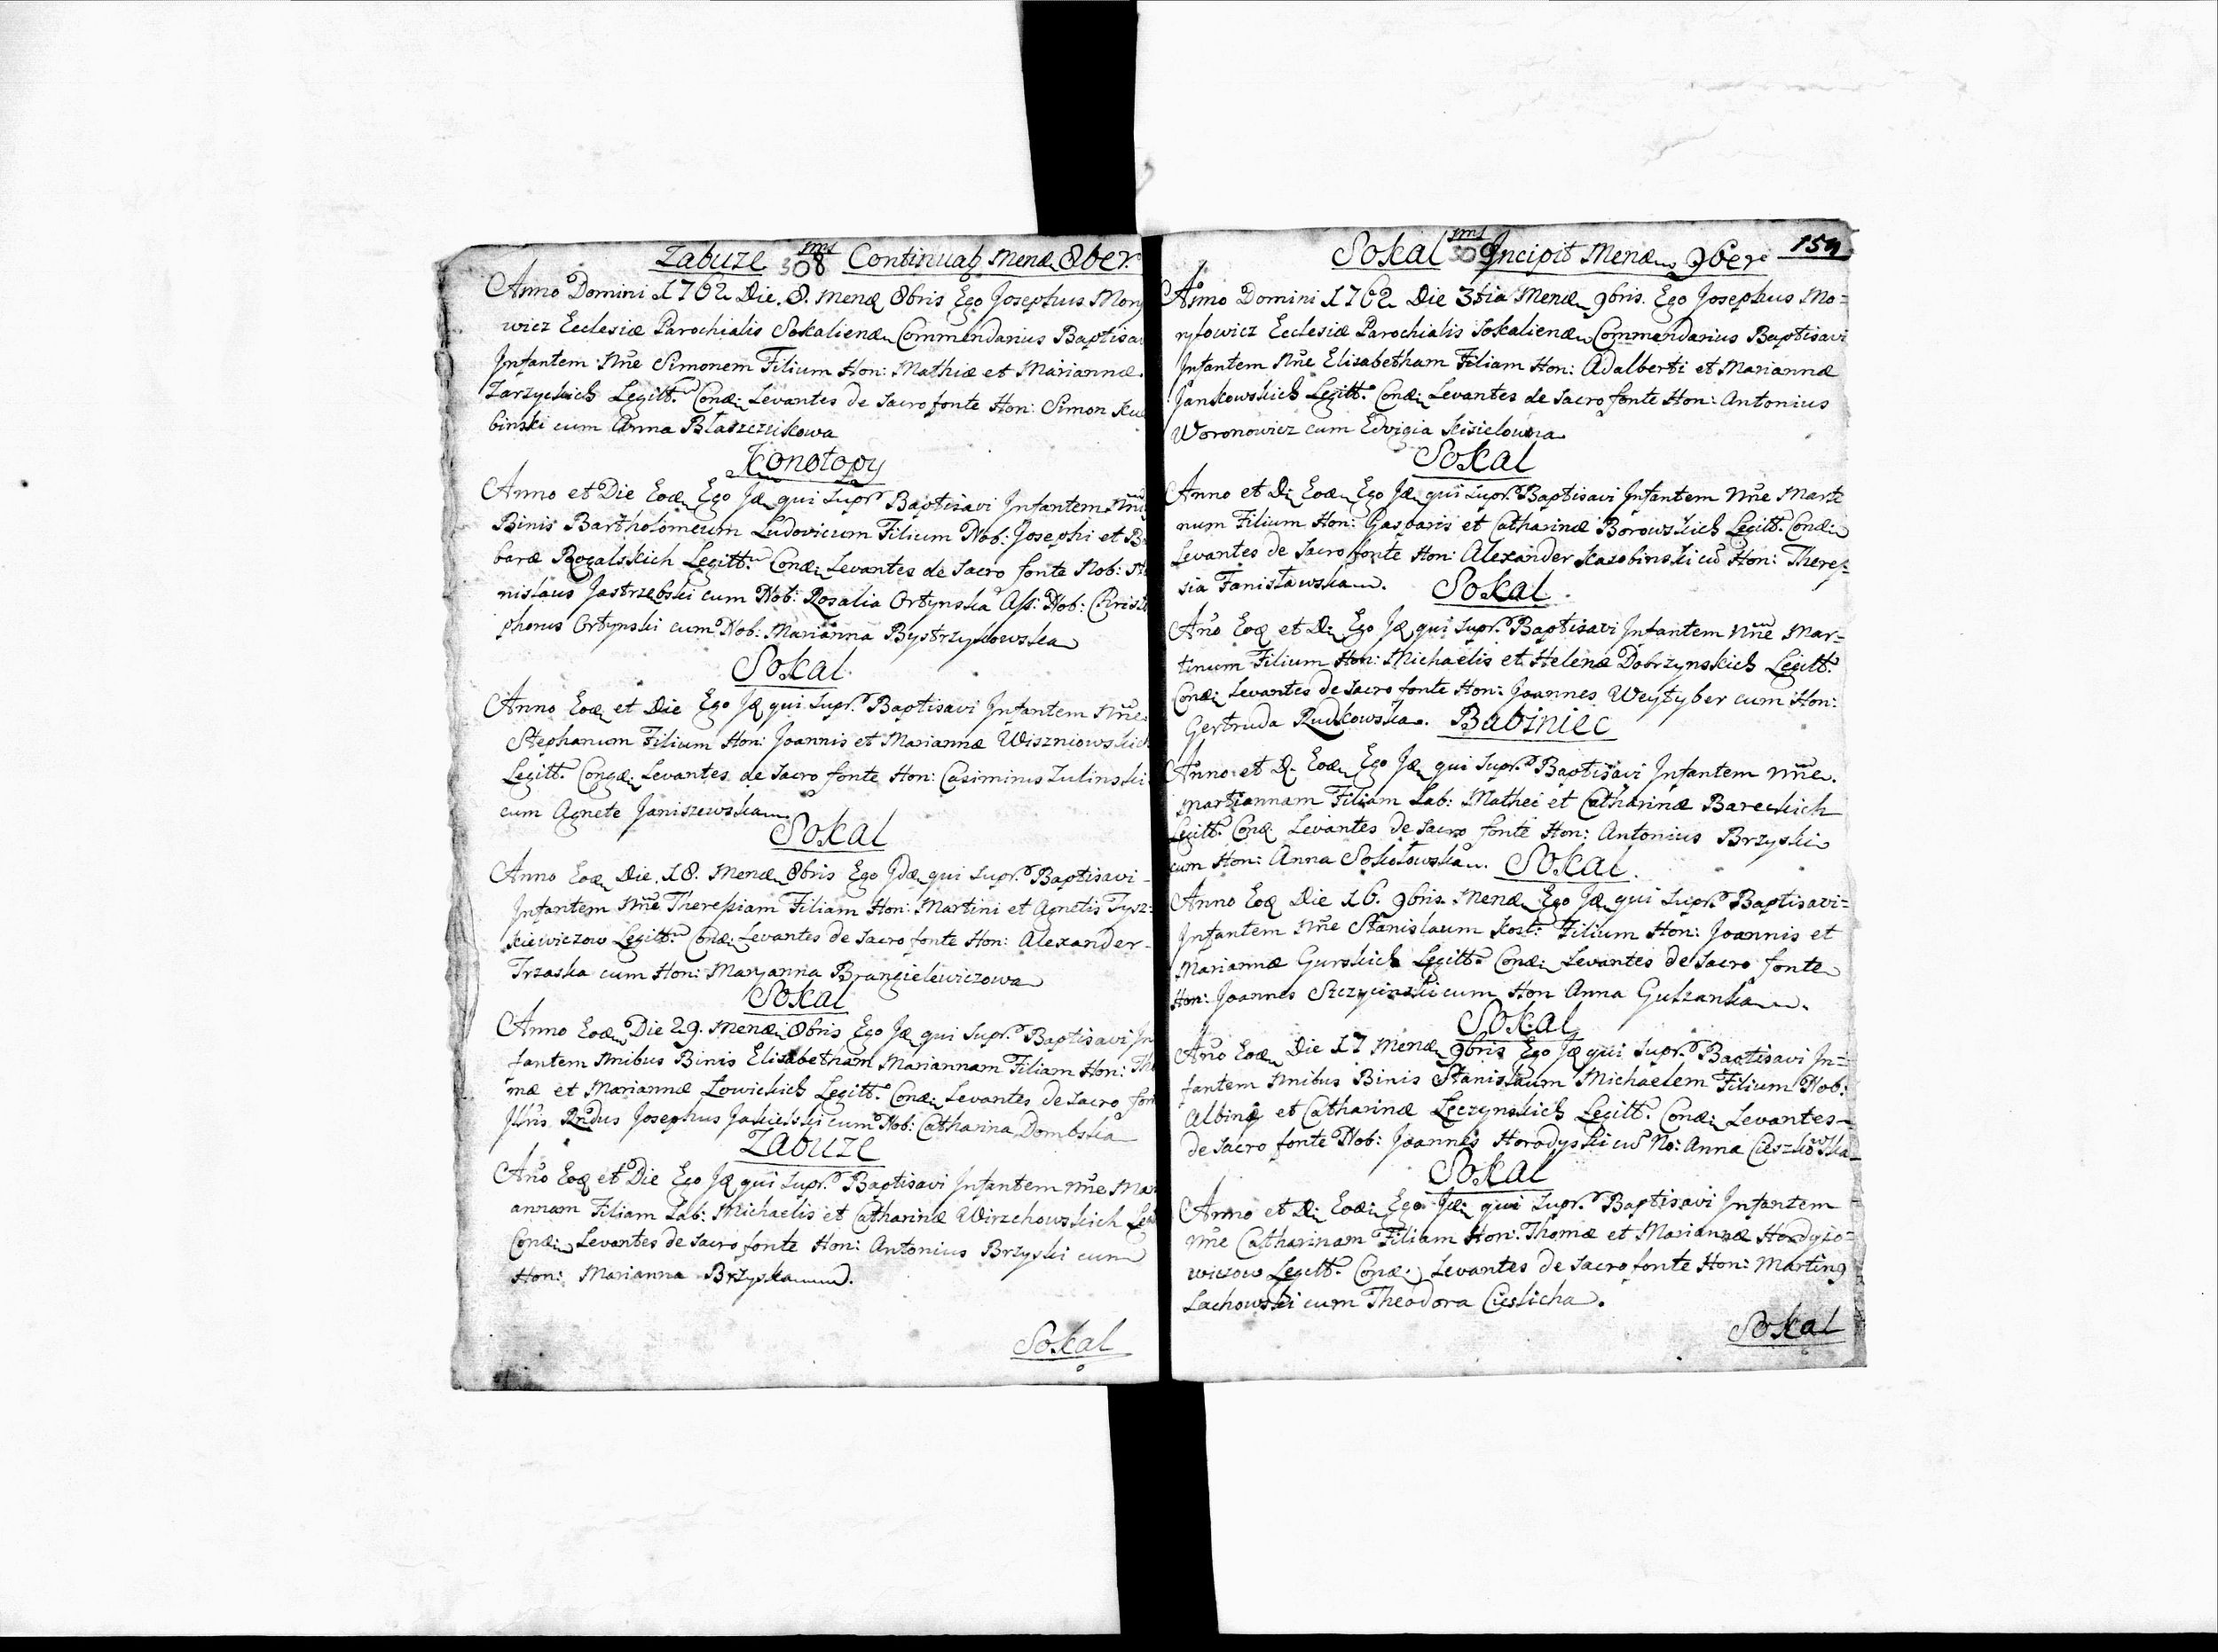 Zabuze 308 Continuat Menæ 8ber.
Anno Domini 1762 Die. 8. Menæ 8bris Ego Josephus Mory
wicz Ecclesiæ Parochialis Sokaliensæ Commendarius Baptisa
Infantem Nne Simonem Filium Hon: Mathiæ et Mariannæ
Zarzyckich Legitt. Conæ: Levantes de Sacro fonte Hon: Simon Ku
binski cum Anna Błaszczukowa
Konotopy
Anno et Die Eoæ Ego Jæ qui Supr. Baptisavi Infantem
Binis Bartholomeum Ludovicum Filium Nob: Josephi et B
baræ Rogalskich Legitt. Conæ: Levantes de Sacro fonte Nob: St
nislaus Jastrzębski cum Nob: Rosalia Ortynska Ass: Nob: Christo
phorus Ortynski cum Nob: Marianna Bystrzykowska
Sokal
Anno Eoæ et Die Ego Jæ qui Supr. Baptisavi Infantem Nne
Stephanum Filium Hon: Joannis et Mariannæ Wiszniowskich
Legitt. Congæ: Levantes de Sacro fonte Hon: Casimirus Zulinski
cum Agnete Janiszewska
Sokal
Anno Eoæ Die 18. Menæ 8bris Ego Jdæ qui Supr. Baptisavi
Infantem Nne Theressiam Filiam Hon: Martini et Agnetis Tysz=
kiewiczow Legitt. Conæ: Levantes de Sacro fonte Hon: Alexander
Trzaska cum Hon: Maryanna Brangielewiczowa
Sokal
Anno Eoæ Die 29. Menæ 8bris Ego Jæ qui Supr. Baptisavi In
fantem Nnibus Binis Elisabetham Mariannam Filiam Hon: Tho
mæ et Mariannæ Łowickich Legitt. Conæ: Levantes de Sacro fon
Rndus Josephus cum Nob: Catharina Dombska
Zabuze
Ano Eoæ et Die Ego Jæ qui Supr. Baptisavi Infantem Nne Mar
annam Filiam Lab: Michaelis et Catharinæ Wirzchowskich Leg
Conæ: Levantes de Sacro fonte Hon: Antonius Brzyski cum
Hon: Marianna Brzyska.
Sokal
Sokal 309 Incipit Menæ 9ber 159
Anno Domini 1762 Die 3tia Menæ 9bris. Ego Josephus Mo=
rylowicz Ecclesiæ Parochialis Sokaliensæ Commendarius Baptisavi
Infantem Nne Elisabetham Filiam Hon: Adalberti et Mariannæ
Jankowskich Legitt. Conæ: Levantes de Sacro fonte Hon: Antonius
Woronowicz cum Edvigia Kisielowna
Sokal
Anno et D: Eoæ Ego Jæ qui Supr. Baptisavi Infantem Nne Marti
num Filium Hon: Gasparis et Catharinæ Borowskich Legitt. Conæ:
Levantes de Sacro fonte Hon: Alexander cu Hon: Theres=
sia Fanisławska. Sokal.
Ano Eoæ et D: Ego Jæ qui Supr. Baptisavi Infantem Nne Mar=
tinum Filium Hon: Michaelis et Helenæ Dobrzynskich Legitt.
Conæ: Levantes de Sacro fonte Hon: Joannes Weytyber cum Hon:
Gertruda Rudkowska. Babiniec
Anno et D. Eoæ Ego Jæ qui Supr. Baptisavi Infantem Nne
Martiannam Filiam Lab: Mathei et Catharinæ Bareckich
Legitt. Conæ. Levantes de Sacro fonte Hon: Antonius Brzyski
cum Hon: Anna Sokołowska. Sokal.
Anno Eoæ Die 16. 9bris Menæ Ego Jæ qui Supr. Baptisavi=
Infantem Nne Stanislaum Kost: Filium Hon: Joannis et
Mariannæ Gurskich Legitt. Conæ: Levantes de Sacro fonte
Hon: Joannes Szczycinski cum Hon Anna Gulzanka.
Sokal
Ano Eoæ Die 17 Menæ 9bris Ego Jæ qui Supr. Baptisavi In=
fantem Nnibus Binis Stanislaum Michaelem Filium Nob:
Albini et Catharinæ Leczynskich Legitt. Conæ: Levantes
de Sacro fonte Nob: Joannes Horodyski cu No: Anna Cieszkowska
Sokal
Anno et D: Eoæ: Ego Jæ: qui Supr. Baptisavi Infantem
Nne Catharinam Filiam Hon: Thomæ et Mariannæ Hordyio=
wiczow Legitt. Conæ: Levantes de Sacro fonte Hon: Martin9
Lachowski cum Theodora Cieslicha.
Sokal